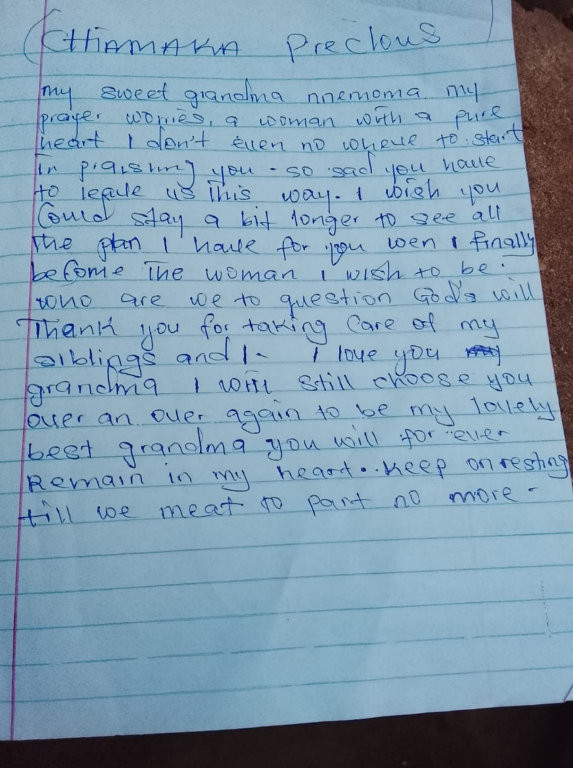 (CHIAMAKA Precious)
my sweet grandma nnemoma my
prayer worries, a woman with a pure
heart I don't even no where to start
in praising you - so sad you have
to leave us This way. I wish you
Could stay a bit longer to see all
The plan I have for you wen I finally
become The woman I wish to be.
who are we to question God's will
Thank you for taking Care of my
siblings and I. I love you
grandma I will still choose you
over an over again to be my lovely
best grandma you will for ever
Remain in my heart. Keep on resting
till we meat to part no more -